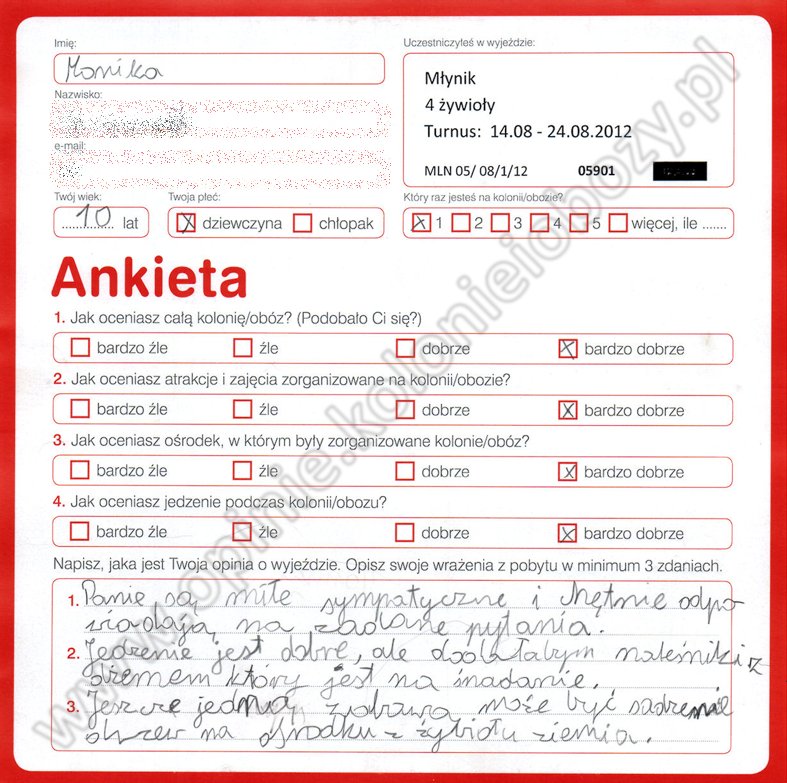 Imię:
Monika
Nazwisko:
e-mail:
Twój wiek:
10 lat
Twoja płeć:
dziewczyna chłopak
Uczestniczyłeś w wyjeździe:
Młynik
4 żywioły
Turnus: 14.08 - 24.08.2012
MLN 05/ 08/1/12 05901
Który raz jesteś na kolonii/obozie?
1 2 3 4 5 więcej, ile .......
Ankieta
1. Jak oceniasz całą kolonię/obóz? (Podobało Ci się?)
bardzo źle źle dobrze bardzo dobrze
2. Jak oceniasz atrakcje i zajęcia zorganizowane na kolonii/obozie?
bardzo źle źle dobrze bardzo dobrze
3. Jak oceniasz ośrodek, w którym były zorganizowane kolonie/obóz?
bardzo źle źle dobrze bardzo dobrze
4. Jak oceniasz jedzenie podczas kolonii/obozu?
bardzo źle źle dobrze bardzo dobrze
Napisz, jaka jest Twoja opinia o wyjeździe. Opisz swoje wrażenia z pobytu w minimum 3 zdaniach.
1. Panie są miłe sympatyczne i hętnie odpo-
wiadają na zadane pytania.
2. Jedzenie jest dobre, ale dodałabym naleśniki z
dżemem który jest na śniadanie.
3. Jeszcze jedną zabawą może być sadzenie
drzew na ośrodku z żywiołu ziemia.
www.opinie.kolonieiobozy.pl